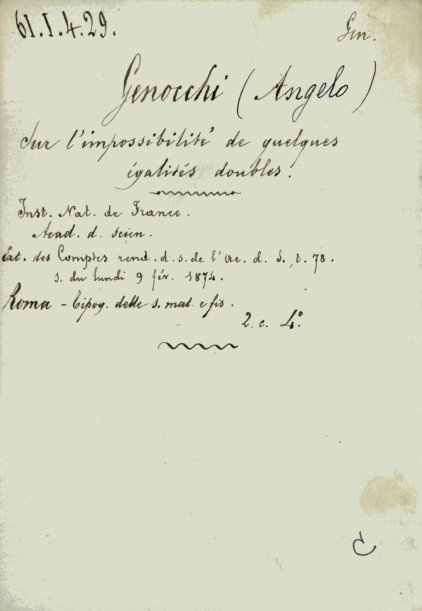 61.I.4.29.
Gen.
Genocchi (Angelo)
Sur l'impossibilité de quelques
égalités doubles.
Inst. Nat. de France.
Acad. d. Scien.
Ext. des Comptes rend. d. s. de l'Ac. d. S., t. 78.
s. du lundi 9 fév. 1874.
Roma - Tipog. delle s. mat. e fis.
2. c. 4°.
C